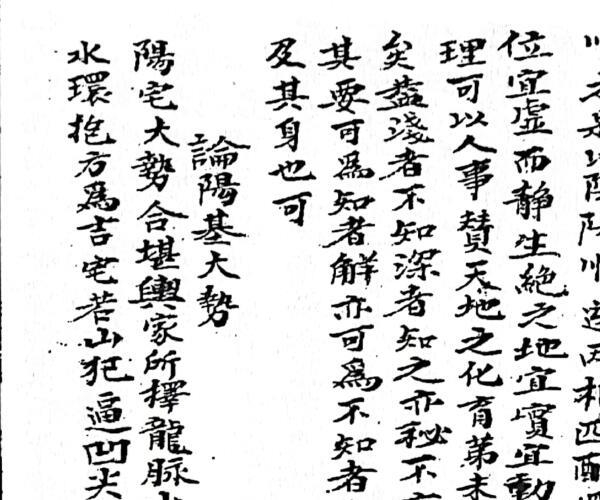 位宜虛而静生絶之地宜實宜動
理可以人事賛天地之化育苐未
矣盖淺者不知深者知之亦秘不
其要可為知者觧亦可為不知者
及其身也可
論陽基大勢
陽宅大勢合堪輿家所擇龍脉
水環抱方為吉宅若山犯逼凹尖